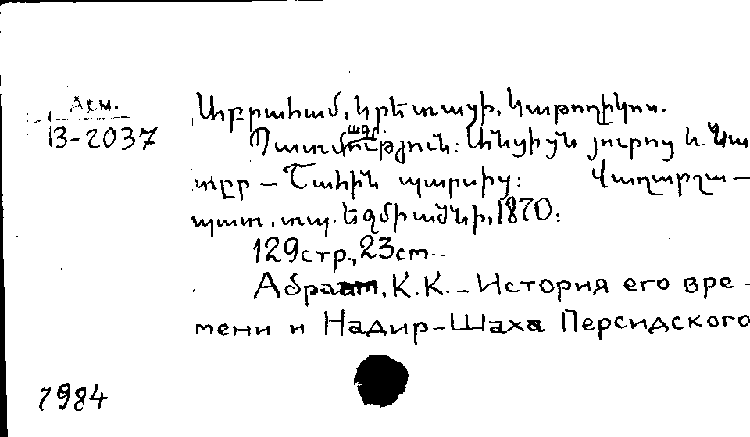 Арм.
В-2037
Աբրահամ, Կրետացի, Կաթողիկոս.
Պատմութիւն: Անցիցն իւրոց և Նա
տըր – Շահին պարսից: Վաղարշա–
պատ, տպ. Էջմիածնի, 1870:
129стр., 23cm.
Абраам, К.К. – История его вре-
мени и Надир-Шаха Персидского
7984